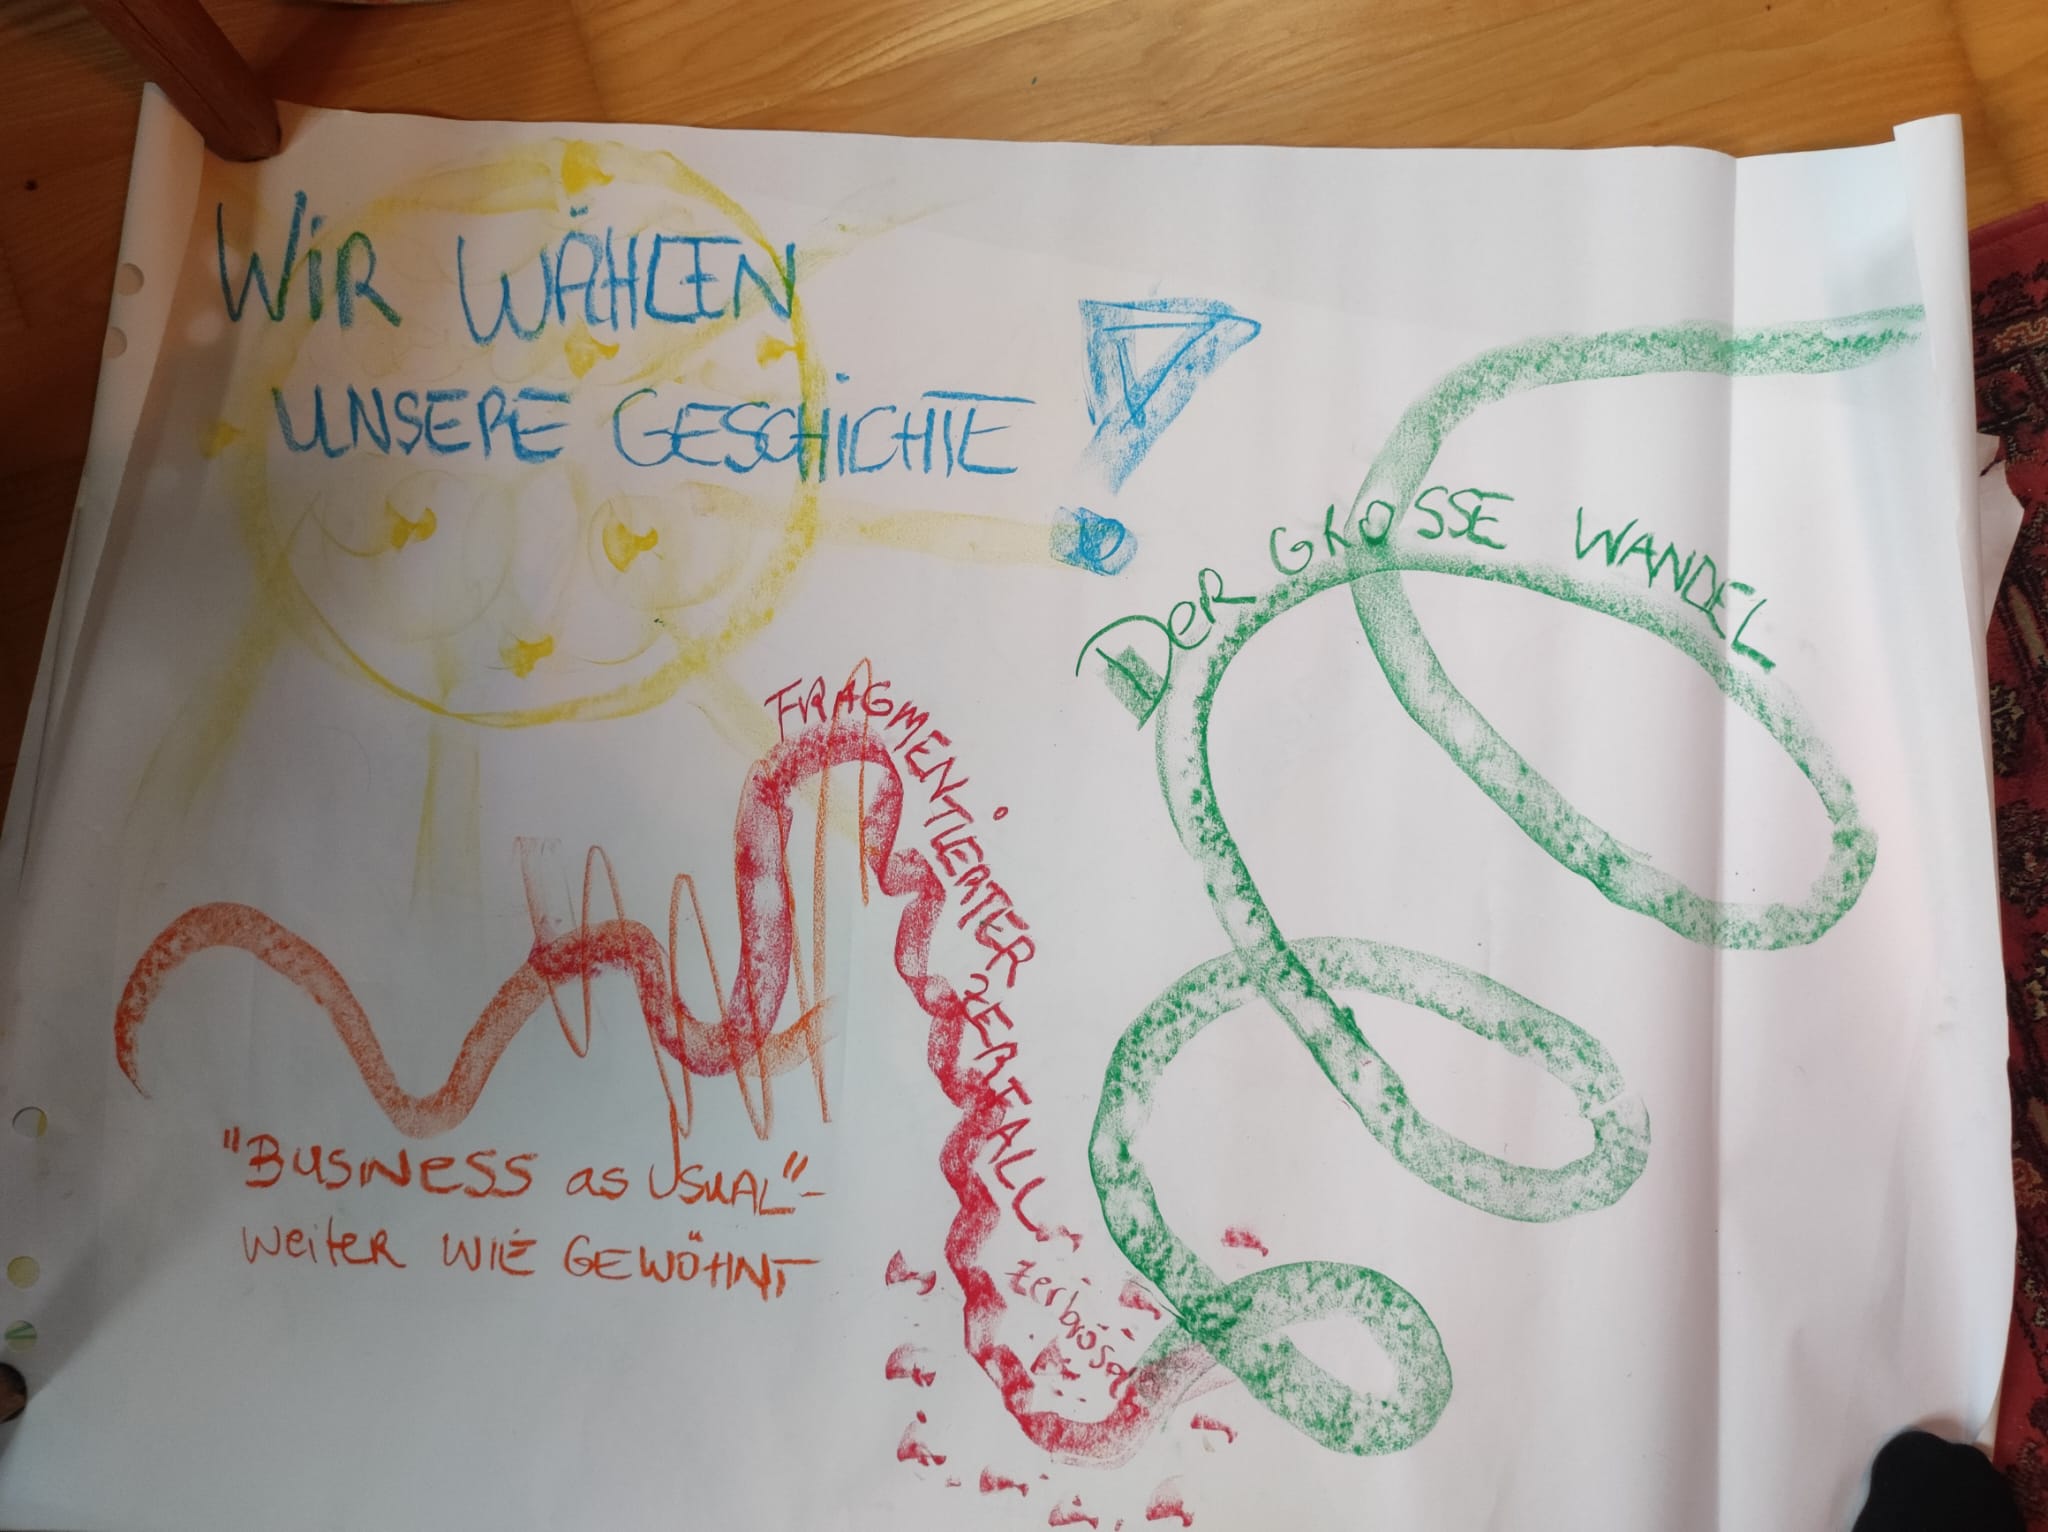 WIR WÄHLEN
UNSERE GESCHICHTE!
DER GROSSE WANDEL
FRAGMENTIERTER ZERFALL
zerbröseln
"BUSINESS as USUAL"-
weiter WIE GEWÖHNT